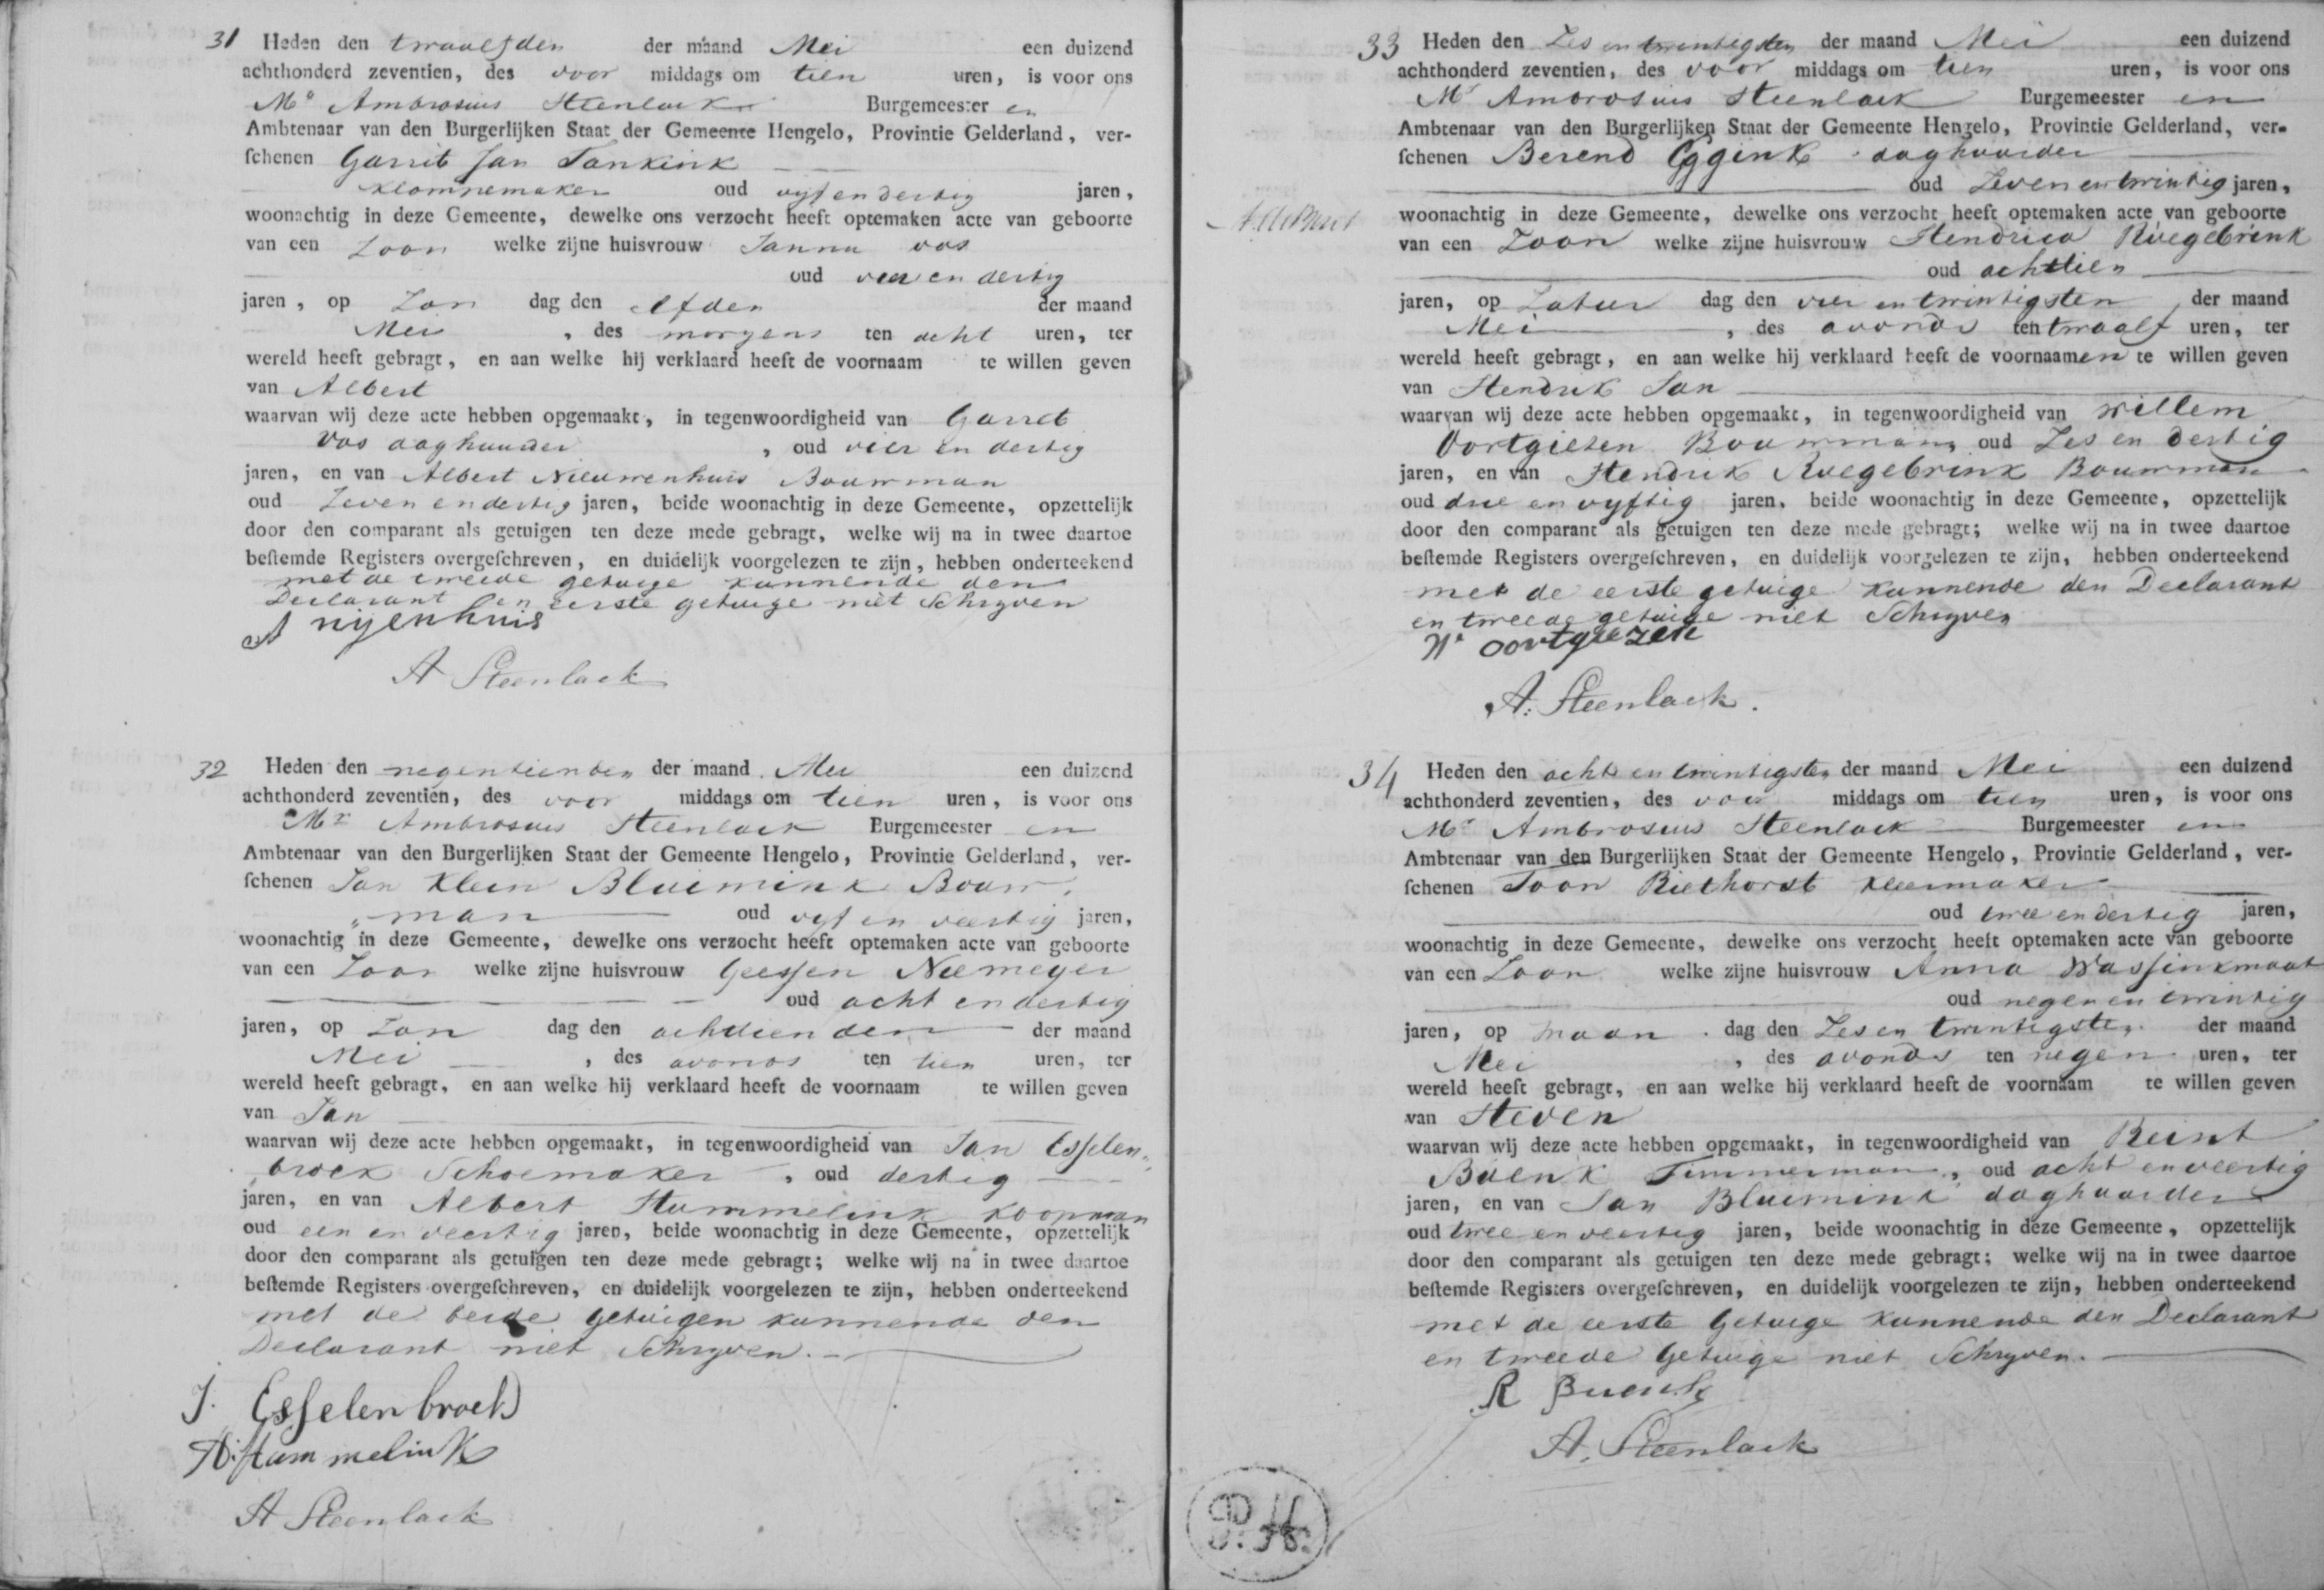 31 Heden den twaalfden der maand Mei een duizend
achthonderd zeventien, des voor middags om tien uren, is voor ons
Mr Ambrosius Steenlack Burgemeester en
Ambtenaar van den Burgerlijken Staat der Gemeente Hengelo, Provintie Gelderland, ver-
ſchenen Garrit Jan Tankink
Klompemaker oud vyf en dertig jaren,
woonachtig in deze Gemeente, dewelke ons verzocht heeft optemaken acte van geboorte
van een Zoon welke zijne huisvrouw Janna Vos
oud vier en dertig
jaren, op Zon dag den elfden der maand
Mei, des morgens ten acht uren, ter
wereld heeft gebragt, en aan welke hij verklaard heeft de voornaam te willen geven
van Albert
waarvan wij deze acte hebben opgemaakt, in tegenwoordigheid van Garret
Vos daghuurder, oud vier en dertig
jaren, en van Albert Nieuwenhuis Bouwman
oud Zeven en dertig jaren, beide woonachtig in deze Gemeente, opzettelijk
door den comparant als getuigen ten deze mede gebragt, welke wij na in twee daartoe
beſtemde Registers overgeſchreven, en duidelijk voorgelezen te zijn, hebben onderteekend
met de tweede getuige kunnende den
Declarant en eerste getuige niet Schryven
A nijenhuis
A Steenlack
32 Heden den negentienden der maand Mei een duizend
achthonderd zeventien, des voor middags om tien uren, is voor ons
Mr Ambrosius Steenlack Burgemeester en
Ambtenaar van den Burgerlijken Staat der Gemeente Hengelo, Provintie Gelderland, ver-
ſchenen Jan Klein Bluemink Bouw
"man oud vyf en veertig jaren,
woonachtig in deze Gemeente, dewelke ons verzocht heeft optemaken acte van geboorte
van een Zoon welke zijne huisvrouw Geessen Niemeyer
oud acht en dertig
jaren, op Zon dag den achttienden der maand
Mei, des avonds ten tien uren, ter
wereld heeft gebragt, en aan welke hij verklaard heeft de voornaam te willen geven
van Jan
waarvan wij deze acte hebben opgemaakt, in tegenwoordigheid van Jan Esselen-
broek Schoemaker, oud dertig
jaren, en van Albert Hummelink Koopman
oud een en veertig jaren, beide woonachtig in deze Gemeente, opzettelijk
door den comparant als getuigen ten deze mede gebragt; welke wij na in twee daartoe
beſtemde Registers overgeſchreven, en duidelijk voorgelezen te zijn, hebben onderteekend
met de beide getuigen kunnende den
Declarant niet Schryven.
J. Esselenbroek
A. Hummelink
A Steenlack
33 Heden den Zes en twintigsten der maand Mei een duizend
achthonderd zeventien, des voor middags om tien uren, is voor ons
Mr Ambrosius Steenlack Burgemeester en
Ambtenaar van den Burgerlijken Staat der Gemeente Hengelo, Provintie Gelderland, ver-
ſchenen Berend Eggink daghuurder
oud Zeven en twintig jaren,
woonachtig in deze Gemeente, dewelke ons verzocht heeft optemaken acte van geboorte
van een Zoon welke zijne huisvrouw Hendrica Ruegebrink
oud achttien
jaren, op Zatur dag den vier en twintigsten der maand
Mei, des avonds ten twaalf uren, ter
wereld heeft gebragt, en aan welke hij verklaard heeft de voornaamen te willen geven
van Hendrik Jan
waarvan wij deze acte hebben opgemaakt, in tegenwoordigheid van Willem
Oortgiesen Bouwman, oud Zes en dertig
jaren, en van Hendrik Ruegebrink Bouwman
oud drie en vyftig jaren, beide woonachtig in deze Gemeente, opzettelijk
door den comparant als getuigen ten deze mede gebragt; welke wij na in twee daartoe
beſtemde Registers overgeſchreven, en duidelijk voorgelezen te zijn, hebben onderteekend
met de eerste getuige kunnende den Declarant
en tweede getuige niet Schryven
W oortgiezen
A. Steenlack.
34 Heden den acht en twintigsten der maand Mei een duizend
achthonderd zeventien, des voor middags om tien uren, is voor ons
Mr Ambrosius Steenlack Burgemeester en
Ambtenaar van den Burgerlijken Staat der Gemeente Hengelo, Provintie Gelderland, ver-
ſchenen Toon Riethorst kleermaker
oud twee en dertig jaren,
woonachtig in deze Gemeente, dewelke ons verzocht heeft optemaken acte van geboorte
van een Zoon welke zijne huisvrouw Anna Wassinkmaat
oud negen en twintig
jaren, op maan dag den Zes en twintigsten der maand
Mei, des avonds ten negen uren, ter
wereld heeft gebragt, en aan welke hij verklaard heeft de voornaam te willen geven
van Steven
waarvan wij deze acte hebben opgemaakt, in tegenwoordigheid van Reint
Buenk Timmerman, oud acht en veertig
jaren, en van Jan Bluemink daghuurder
oud twee en veertig jaren, beide woonachtig in deze Gemeente, opzettelijk
door den comparant als getuigen ten deze mede gebragt; welke wij na in twee daartoe
beſtemde Registers overgeſchreven, en duidelijk voorgelezen te zijn, hebben onderteekend
met de eerste Getuige kunnende den Declarant
en tweede Getuige niet Schryven.
R Buenk
A. Steenlack